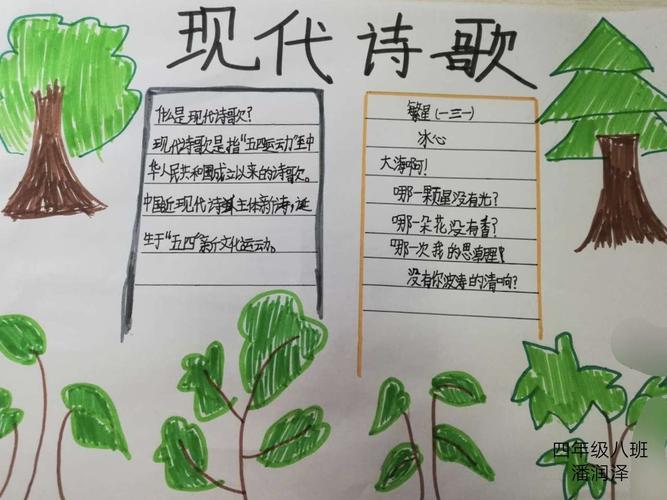 现代诗歌
什么是现代诗歌?
现代诗歌是指“五四运动”至中
华人民共和国成立以来的诗歌。
中国近现代诗主体新诗,诞
生于“五四”新文化运动。
繁星(一三一)
冰心
大海啊!
哪一颗星没有光?
哪一朵花没有香?
哪一次我的思潮里
没有你波涛的清响?
四年级八班
潘润泽